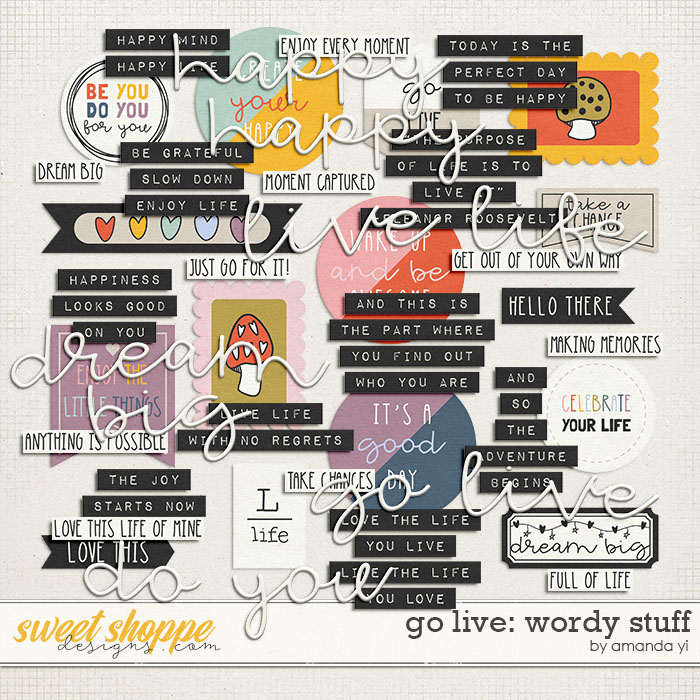 HAPPY MIND
HAPPY LIFE
ENJOY EVERY MOMENT
TODAY IS THE
PERFECT DAY
TO BE HAPPY
happy
happy
BE YOU
DO YOU
for you
CREATE
your
HAPPY
go
LIVE
DREAM BIG
BE GRATEFUL
SLOW DOWN
ENJOY LIFE
MOMENT CAPTURED
"THE PURPOSE
OF LIFE IS TO
LIVE IT"
ELEANOR ROOSEVELT
take a
CHANCE
live life
WAKE UP
and be
AWESOME
JUST GO FOR IT!
GET OUT OF YOUR OWN WAY
HAPPINESS
LOOKS GOOD
ON YOU
AND THIS IS
THE PART WHERE
YOU FIND OUT
WHO YOU ARE
HELLO THERE
MAKING MEMORIES
dream
big
ENJOY THE
LITTLE THINGS
ANYTHING IS POSSIBLE
LIVE LIFE
WITH NO REGRETS
IT'S A
good
DAY
AND
SO
THE
ADVENTURE
BEGINS
CELEBRATE
YOUR LIFE
THE JOY
STARTS NOW
LOVE THIS LIFE OF MINE
LOVE THIS
L
life
TAKE CHANCES
go live
LOVE THE LIFE
YOU LIVE
LIVE THE LIFE
YOU LOVE
dream big
FULL OF LIFE
do you
sweet shoppe
designs.com
go live: wordy stuff
by amanda yi